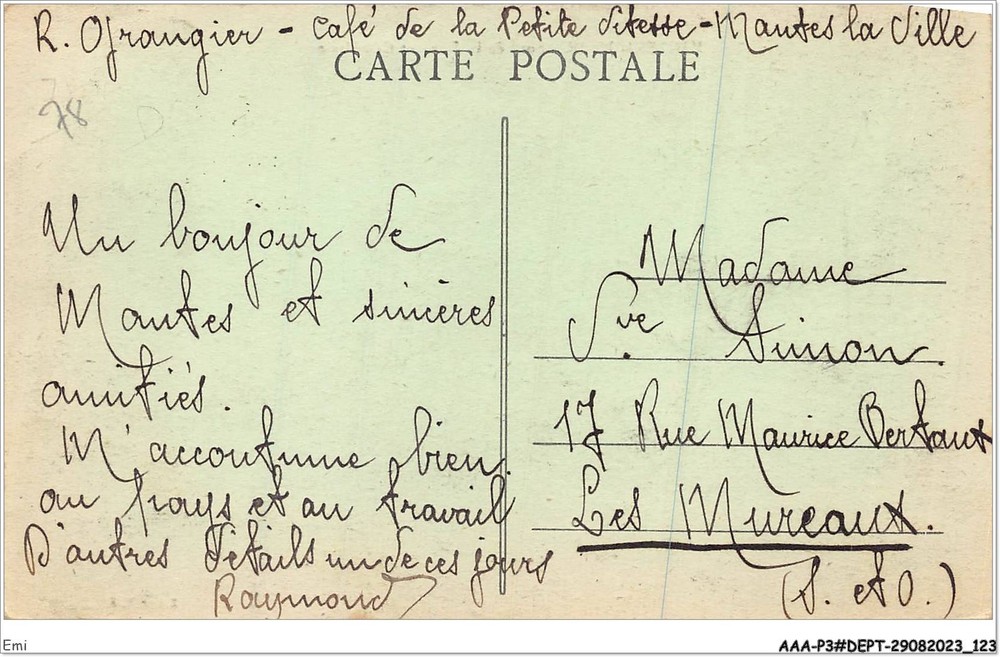 R. Ograngier - Café de la Petite Vitesse - Mantes la Ville
CARTE POSTALE
78
Un bonjour de
Mantes et sincères
amitiés.
M'accoutume bien
au pays et au travail
D'autres détails un de ces jours
Raymond
Madame
Vve. Simon.
17 Rue Maurice Bertaux
Les Mureaux.
(S. et O.)
Emi
AAA-P3#DEPT-29082023_123